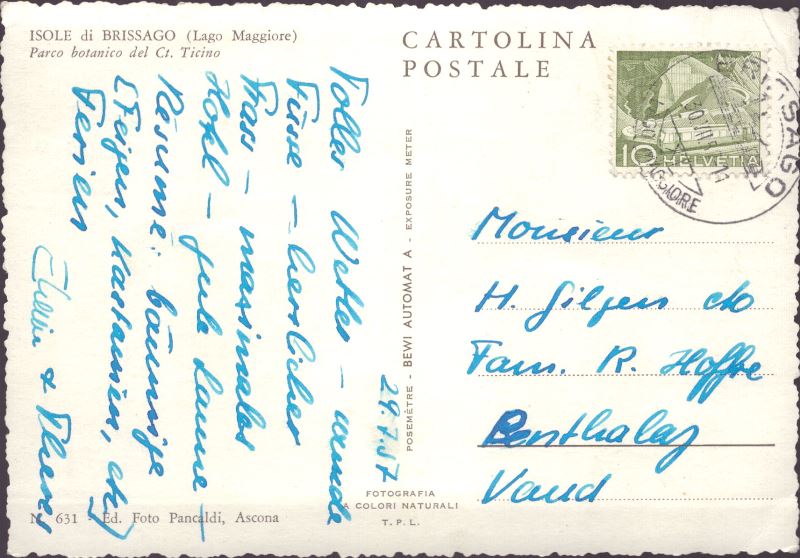 ISOLE di BRISSAGO (Lago Maggiore)
Parco botanico del Ct. Ticino
CARTOLINA
POSTALE
10 HELVETIA
BRISSAGO
Toller Wetter – wunde
Füsse – herrlicher
Frass – maximales
Hotel – gute Laune –
Résumé: bäumige
(Feigen, Kastanien, etc)
Ferien
& Theres
29.7.57
POSEMÈTRE - BEWI AUTOMAT A - EXPOSURE METER
Monsieur
H. Gilgen c/o
Fam. R.
Penthalaz
Vaud
FOTOGRAFIA
A COLORI NATURALI
T. P. L.
N. 631 - Ed. Foto Pancaldi, Ascona